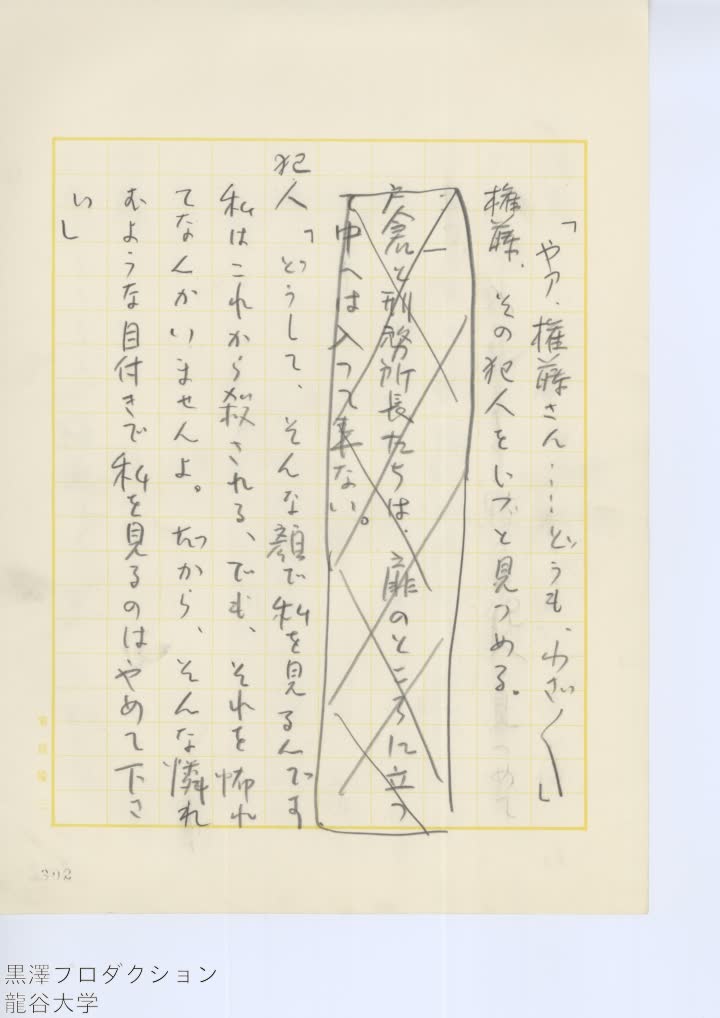 「やア、権藤さん……どうも、わざ〳〵」
権藤、その犯人をいブと見つめる。
戸倉と刑務所長たちは、扉のところに立つ
て中へは入って来ない。
犯人「どうして、そんな顔で私を見るんです
私はこれから殺される、でも、それを怖れ
てなんかいませんよ。だから、そんな憐れ
むような目付きで私を見るのはやめて下さ
い」
302
黒澤プロダクション
龍谷大学